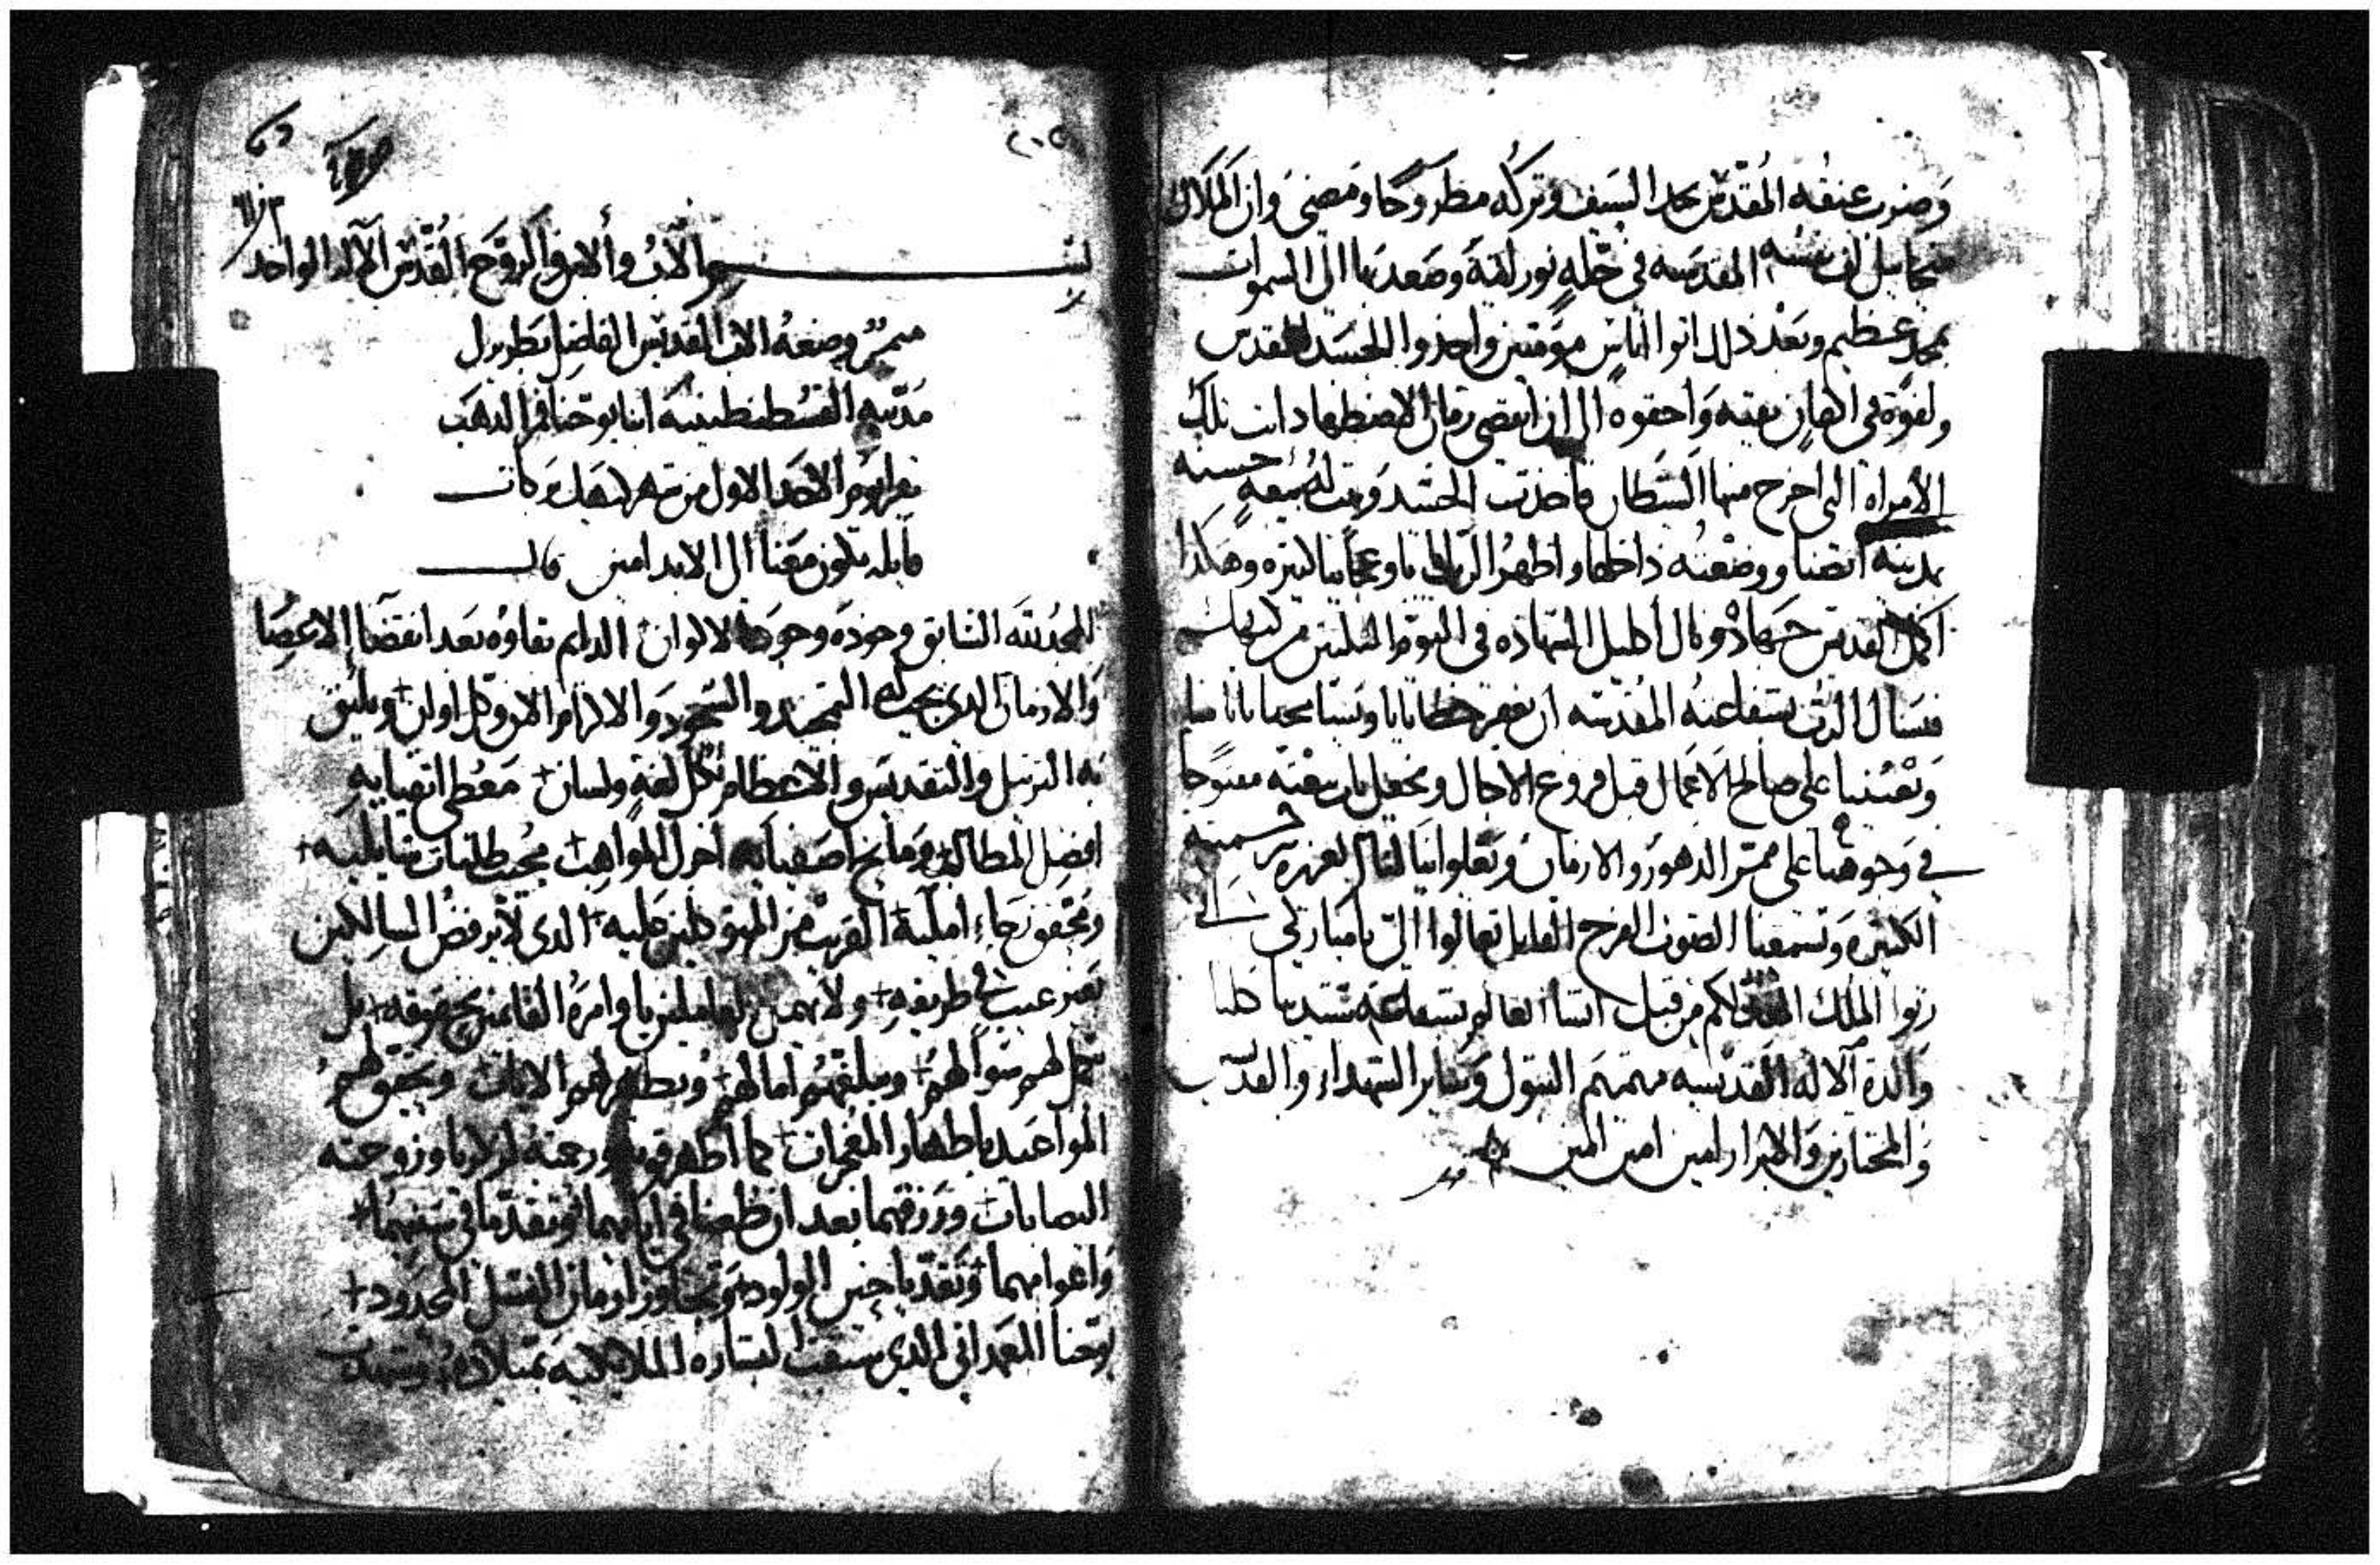 وضرب عنقه المقدس بحد السيف وتركه مطروحا ومضى وان الملاك
ميخاييل لف نفسه المقدسه في حله نورانية وصعد بها الى السموات
بمجد عظيم وبعد ذلك اتوا اناس مومنين واخذوا الجسد المقدس
ولفوه في اكفان نقيه واخفوه الى ان انقضى زمان الاضطهاد اتت تلك
الامراه التي اخرج منها الشيطان فاخذت الجسد وبنت له بيعه حسنه
بمدينه انصنا ووضعته داخلها واظهر الرب ايات وعجايبا كثيره وهكذا
اكمل القديس جهاده ونال اكليل الشهاده في اليوم الثلثين من
فنسال الرب بشفاعته المقدسه ان يغفر خطايانا ويسامحنا باثامنا
ويعيننا على صالح الاعمال قبل فروع الاجال ويجعل باب بيعته مفتوحا
في وجوهنا على ممر الدهور والازمان
الكثيره ويسمعنا الصوت الفرح القايل تعالوا الي يا مباركي ابي
رثوا الملك المعد لكم من قبل انشا العالم بشفاعة سيدتنا كلنا
والدة الاله القديسه مرتمريم البتول وساير الشهداء والقديسين
والمختارين والابرار امين امين امين
بسم الاب والابن والروح القدس الاله الواحد
ميمر وضعه الاب القديس الفاضل بطريرك
مدينه القسطنطينيه انبا يوحنا فم الذهب
يقرا يوم الاحد الاول من شهر كيهك بركات
قايله تكون معنا الى الابد امين قال
المجد لله السابق وجوده وجود الاكوان الدايم بقاوه بعد انقضا الاعصا
والازمان الذي يجب له التمجيد والسجود والاكرام الان وكل اوان ويليق
به الترتيل والتقديس والاعظام بكل لغة ولسان معطي اتقيايه
افضل المطالب ومانح اصفيايه اجزل المواهب مجيب طلبات سايليه
ومحقق رجاء امليه القريب من المتوكلين عليه الذي لا يرفض السالكين
بغير عيب في طريقه ولا يهمل العاملين باوامره القايمين بحقوقه بل
يكمل لهم سوالهم ويبلغهم امالهم ويظهر لهم الايات ويحقق لهم
المواعيد باظهار المعجزات كما اظهر قوته ورحمته لزكريا وزوجته
اليصابات ورزقهما بعد ان طعنا في ايامهما وتقدما في سنهما
واعوامهما وتعديا حين الولود وتجاوزا زمان النسل المحدود
يوحنا المعمداني الذي سبقت البشاره الملايكيه بميلاده